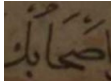 اصحابك